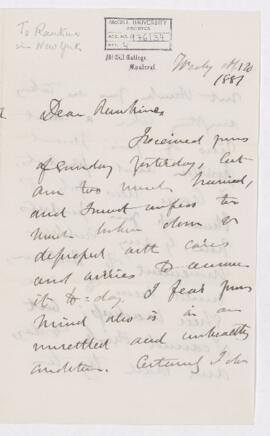 To Rankine
in New York
McGILL UNIVERSITY
ARCHIVES
ACC. NO.
REF.
McGill College,
Montreal.
1881
Dear Rankine
Received yours
of Sunday yesterday, but
am too much hurried,
and I must confess too
much broken down &
depressed with cares
and to answer
it to-day. I fear your
mind also is in an
unsettled and unhealthy
condition. Certainly I do